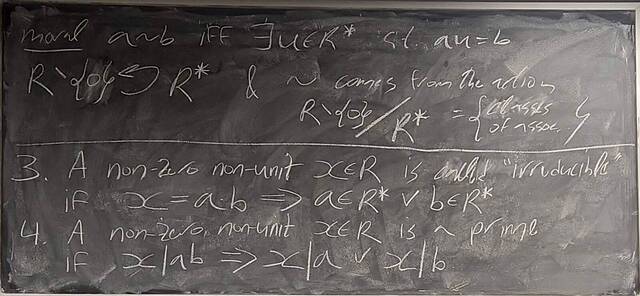 moral a~b iff ∃u∈R* s.t. au=b
R\{0} ↶ R* & ~ comes from the action
R\{0}/R* = {classes of assoc.}
3. A non-zero non-unit x∈R is called "irreducible"
if x=a·b ⟹ a∈R* ∨ b∈R*
4. A non-zero, non-unit x∈R is a prime
if x|ab ⟹ x|a ∨ x|b